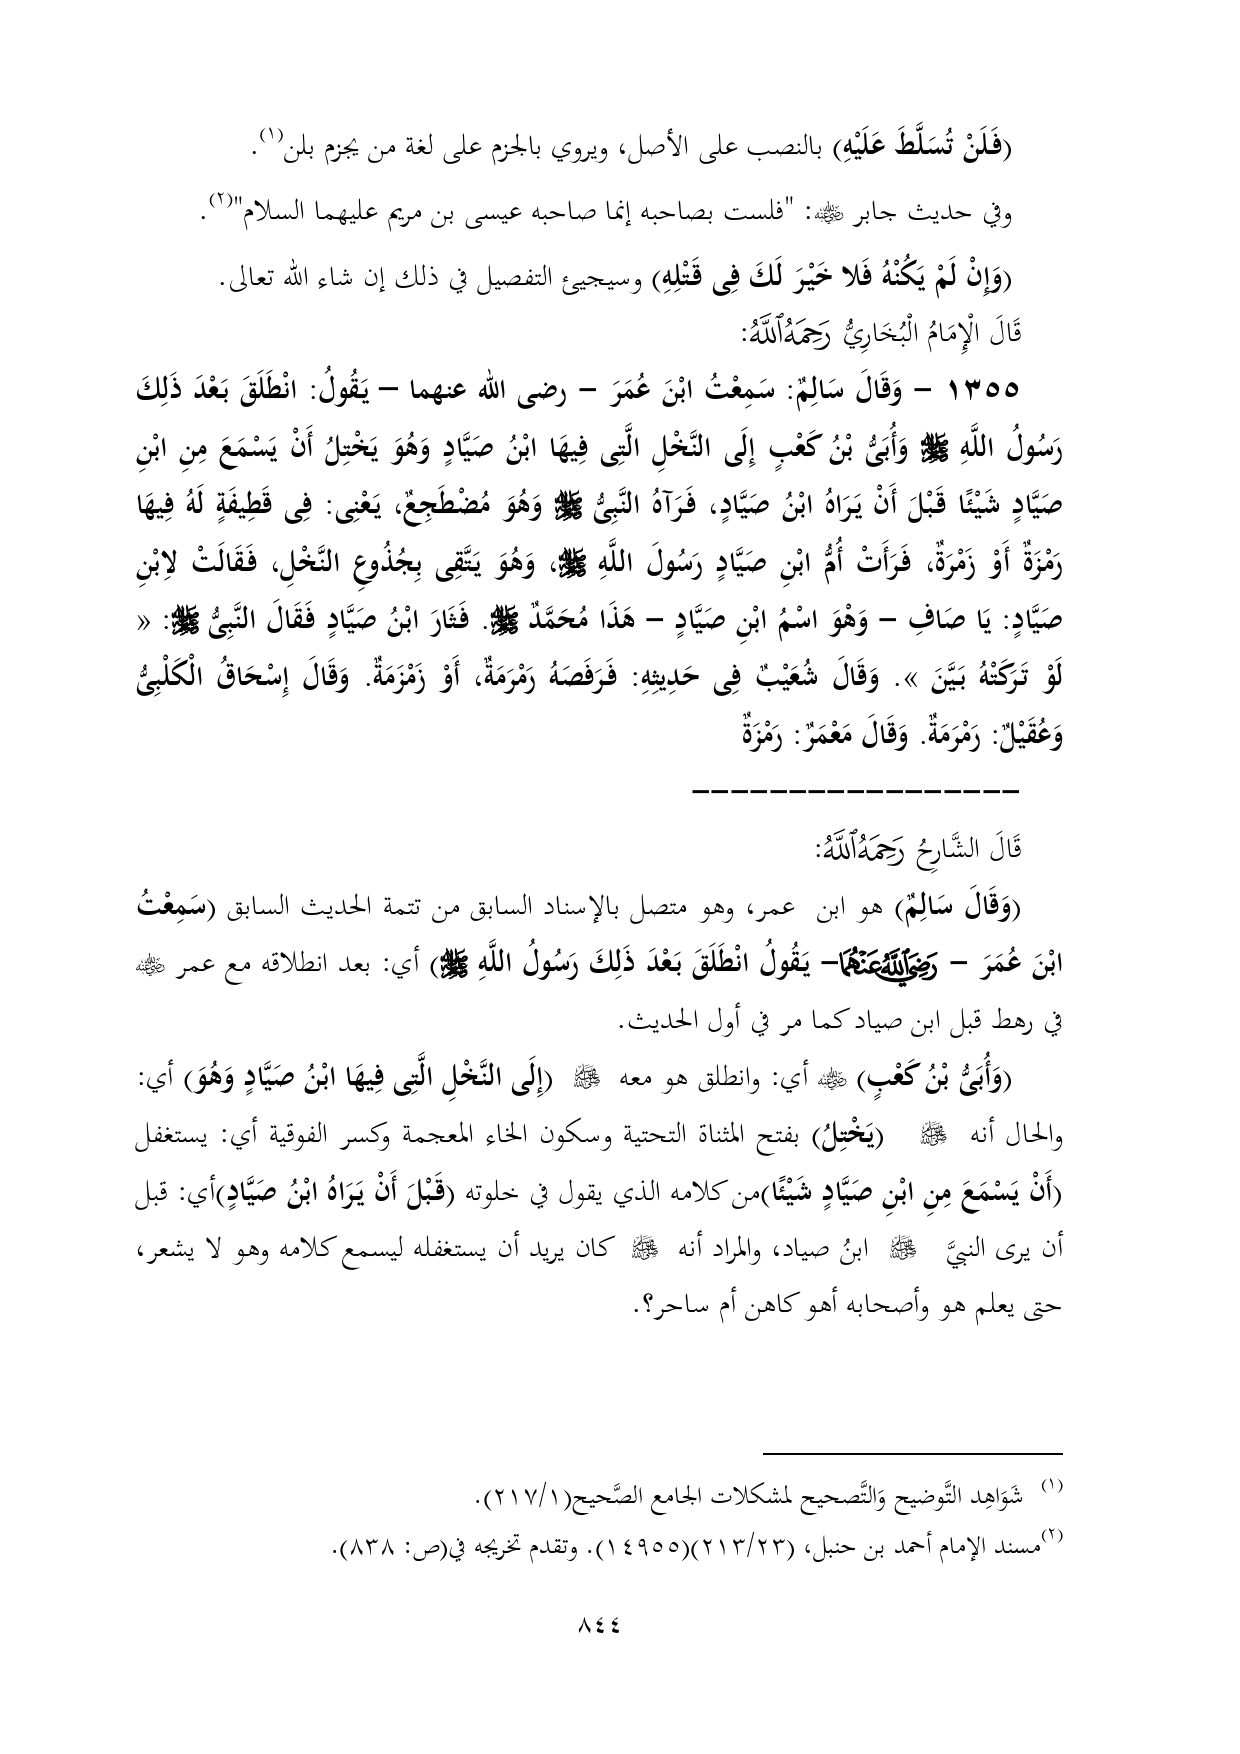 (فَلَنْ تُسَلَّطَ عَلَيْهِ) بالنصب على الأصل، ويروي بالجزم على لغة من يجزم بلن(١).
وفي حديث جابر ﵁: "فلست بصاحبه إنما صاحبه عيسى بن مريم عليهما السلام"(٢).
(وَإِنْ لَمْ يَكُنْهُ فَلا خَيْرَ لَكَ فِى قَتْلِهِ) وسيجيئ التفصيل في ذلك إن شاء الله تعالى.
قَالَ الْإِمَامُ الْبُخَارِيُّ رَحِمَهُ ٱللَّهُ:
١٣٥٥ – وَقَالَ سَالِمٌ: سَمِعْتُ ابْنَ عُمَرَ – رضى الله عنهما – يَقُولُ: انْطَلَقَ بَعْدَ ذَلِكَ
رَسُولُ اللَّهِ ﷺ وَأُبَىُّ بْنُ كَعْبٍ إِلَى النَّخْلِ الَّتِى فِيهَا ابْنُ صَيَّادٍ وَهُوَ يَخْتِلُ أَنْ يَسْمَعَ مِنِ ابْنِ
صَيَّادٍ شَيْئًا قَبْلَ أَنْ يَرَاهُ ابْنُ صَيَّادٍ، فَرَآهُ النَّبِىُّ ﷺ وَهُوَ مُضْطَجِعٌ، يَعْنِى: فِى قَطِيفَةٍ لَهُ فِيهَا
رَمْزَةٌ أَوْ زَمْرَةٌ، فَرَأَتْ أُمُّ ابْنِ صَيَّادٍ رَسُولَ اللَّهِ ﷺ، وَهُوَ يَتَّقِى بِجُذُوعِ النَّخْلِ، فَقَالَتْ لاِبْنِ
صَيَّادٍ: يَا صَافِ – وَهْوَ اسْمُ ابْنِ صَيَّادٍ – هَذَا مُحَمَّدٌ ﷺ. فَثَارَ ابْنُ صَيَّادٍ فَقَالَ النَّبِىُّ ﷺ: «
لَوْ تَرَكَتْهُ بَيَّنَ ». وَقَالَ شُعَيْبٌ فِى حَدِيثِهِ: فَرَفَصَهُ رَمْرَمَةٌ، أَوْ زَمْزَمَةٌ. وَقَالَ إِسْحَاقُ الْكَلْبِىُّ
وَعُقَيْلٌ: رَمْرَمَةٌ. وَقَالَ مَعْمَرٌ: رَمْزَةٌ
–––––––––––––––––
قَالَ الشَّارِحُ رَحِمَهُ ٱللَّهُ:
(وَقَالَ سَالِمٌ) هو ابن عمر، وهو متصل بالإسناد السابق من تتمة الحديث السابق (سَمِعْتُ
ابْنَ عُمَرَ – رَضِيَ ٱللَّهُ عَنْهُمَا– يَقُولُ انْطَلَقَ بَعْدَ ذَلِكَ رَسُولُ اللَّهِ ﷺ) أي: بعد انطلاقه مع عمر ﵁
في رهط قبل ابن صياد كما مر في أول الحديث.
(وَأُبَىُّ بْنُ كَعْبٍ) ﵁ أي: وانطلق هو معه ﷺ (إِلَى النَّخْلِ الَّتِى فِيهَا ابْنُ صَيَّادٍ وَهُوَ) أي:
والحال أنه ﷺ (يَخْتِلُ) بفتح المثناة التحتية وسكون الخاء المعجمة وكسر الفوقية أي: يستغفل
(أَنْ يَسْمَعَ مِنِ ابْنِ صَيَّادٍ شَيْئًا)من كلامه الذي يقول في خلوته (قَبْلَ أَنْ يَرَاهُ ابْنُ صَيَّادٍ)أي: قبل
أن يرى النبيَّ ﷺ ابنُ صياد، والمراد أنه ﷺ كان يريد أن يستغفله ليسمع كلامه وهو لا يشعر،
حتى يعلم هو وأصحابه أهو كاهن أم ساحر؟.
(١) شَوَاهِد التَّوضيح وَالتَّصحيح لمشكلات الجامع الصَّحيح(٢١٧/١).
(٢)مسند الإمام أحمد بن حنبل، (٢١٣/٢٣)(١٤٩٥٥). وتقدم تخريجه في(ص: ٨٣٨).
٨٤٤